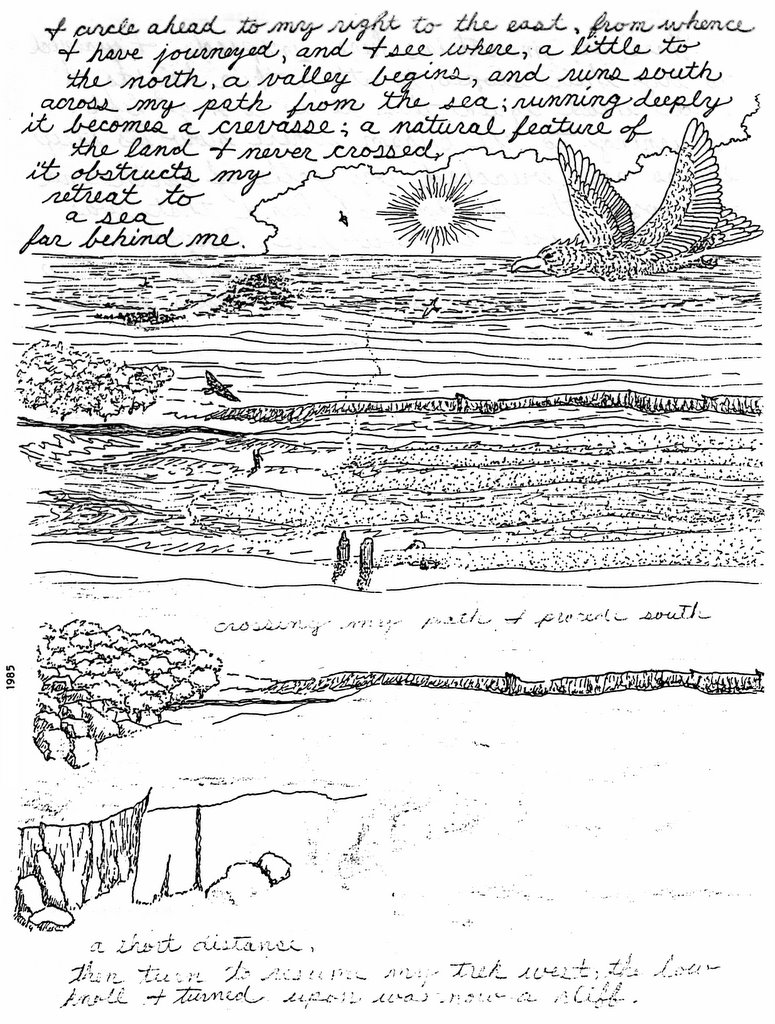 I circle ahead to my right to the east, from whence
I have journeyed, and I see where, a little to
the north, a valley begins, and runs south
across my path from the sea; running deeply
it becomes a crevasse; a natural feature of
the land I never crossed,
it obstructs my
retreat to
a sea
far behind me.
crossing my path I procede south
1985
a short distance,
then turn to resume my trek west; the low
knoll I turned upon was now a cliff.